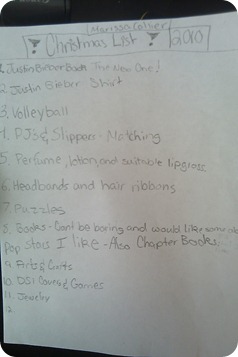 Marissa Collier
Christmas List 2010
1. Justin Bieber Book The New One!
2. Justin Bieber Shirt
3. Volleyball
4. PJ's & Slippers - Matching
5. Perfume, lotion and suitable lipgloss
6. Headbands and hair ribbons
7. Puzzles
8. Books - Cant be boring and would like some
Pop stars I like - Also Chapter Books
9. Arts & Crafts
10. DSi Games
11. Jewelry
12.